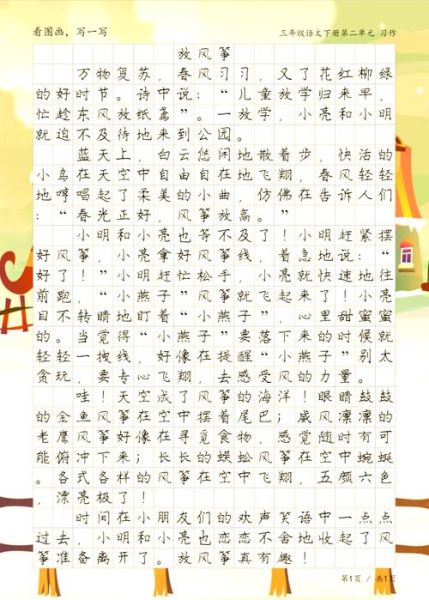 看图画，写一写
三年级语文下册第二单元 习作
放风筝
万物复苏，春风习习，又了花红柳绿
的好时节。诗中说：“儿童放学归来早，
忙趁东风放纸鸢”。一放学，小亮和小明
就迫不及待地来到公园。
蓝天上，白云悠闲地散着步，快活的
小鸟在天空中自由自在地飞翔，春风轻轻
地哼唱起了柔美的小曲，仿佛在告诉人们
：“春光正好，风筝放高。”
小明和小亮也等不及了！小明赶紧摆
好风筝，小亮拿好风筝线，着急地说：“
好了！”小明赶忙松手，小亮就快速地往
前跑，“小燕子”风筝就飞起来了！小亮
目不转睛地盯着“小燕子”，心里甜蜜蜜
的。当觉得“小燕子”要落下来的时候就
轻轻一拽线，好像在提醒“小燕子”别太
贪玩，要专心飞翔，去感受风的力量。
哇！天空成了风筝的海洋！眼睛鼓鼓
的金鱼风筝在空中摆着尾巴；威风凛凛的
老鹰风筝好像在寻觅食物，感觉随时有可
能俯冲下来；长长的蜈蚣风筝在空中蜿蜒
。各式各样的风筝在空中飞翔，五颜六色
，漂亮极了！
时间在小朋友们的欢声笑语中一点点
过去，小明和小亮也恋恋不舍地收起了风
筝准备离开了。放风筝真有趣！
第1页 / 共1页